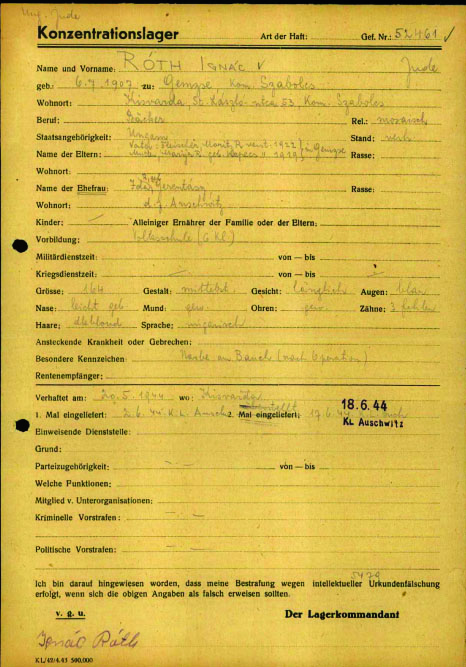 Ung. Jude
Konzentrationslager Art der Haft: Gef. Nr.: 52461
Name und Vorname: RÓTH IGNÁC Jude
geb.: 6.7.1907 zu: Gemzse Kom. Szabolcs
Wohnort: Kisvarda Kom. Szabolcs
Beruf: Bäcker Rel.: mosaisch
Staatsangehörigkeit: Ungarn Stand: verh
Name der Eltern: Vater: Fleischer Rasse:
Wohnort:
Name der Ehefrau: Rasse:
Wohnort: Auschwitz
Kinder: Alleiniger Ernährer der Familie oder der Eltern:
Vorbildung: Volksschule (6 Kl.)
Militärdienstzeit: von — bis
Kriegsdienstzeit: von — bis
Grösse: 164 Gestalt: mittelst. Gesicht: länglich Augen: blau
Nase: leicht geb Mund: gew. Ohren: gew. Zähne: 3 fehlen
Haare: dklblond Sprache: ungarisch
Ansteckende Krankheit oder Gebrechen:
Besondere Kennzeichen: Narbe am Bauch (nach Operation)
Rentenempfänger:
Verhaftet am: 20.5.1944 wo: Kisvarda
18.6.44
1. Mal eingeliefert: 2.6.44 K.L. Ausch 2. Mal eingeliefert: 17.6.44
KL Auschwitz
Einweisende Dienststelle:
Grund:
Parteizugehörigkeit: von — bis
Welche Funktionen:
Mitglied v. Unterorganisationen:
Kriminelle Vorstrafen:
Politische Vorstrafen:
Ich bin darauf hingewiesen worden, dass meine Bestrafung wegen intellektueller Urkundenfälschung
erfolgt, wenn sich die obigen Angaben als falsch erweisen sollten.
v. g. u. Der Lagerkommandant
Ignác Róth
KL/42/4.43 500.000